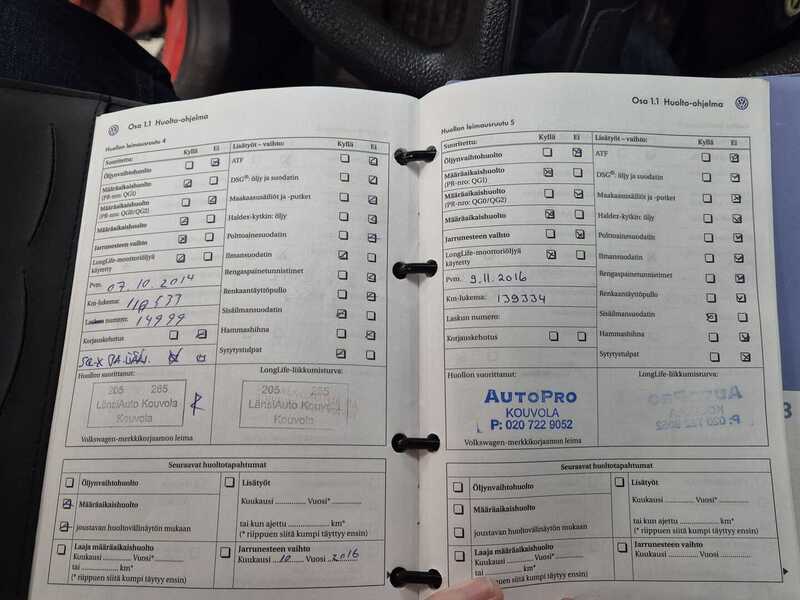 Osa 1.1 Huolto-ohjelma
Huollon leimausruutu 4
Suoritettu: Kyllä Ei
Öljynvaihtohuolto
Määräaikaishuolto
(PR-nro: QG1)
Määräaikaishuolto
(PR-nro: QG0/QG2)
Määräaikaishuolto
Jarrunesteen vaihto
LongLife-moottoriöljyä
käytetty
Pvm. 07.10.2014
Km-lukema:
Laskun numero: 14999
Korjauskehotus
Huollon suorittanut:
205 265
LänsiAuto Kouvola
Kouvola
Volkswagen-merkkikorjaamon leima
Lisätyöt – vaihto: Kyllä Ei
ATF
DSG®: öljy ja suodatin
Maakaasusäiliöt ja -putket
Haldex-kytkin: öljy
Polttoainesuodatin
Ilmansuodatin
Rengaspainetunnistimet
Renkaantäyttöpullo
Sisäilmansuodatin
Hammashihna
Sytytystulpat
LongLife-liikkumisturva:
205 265
LänsiAuto Kouvola
Kouvola
Seuraavat huoltotapahtumat
Öljynvaihtohuolto
Määräaikaishuolto
joustavan huoltovälinäytön mukaan
Laaja määräaikaishuolto
Kuukausi ............ Vuosi*............
tai ............ km*
(* riippuen siitä kumpi täyttyy ensin)
Lisätyöt
Kuukausi ............ Vuosi*............
tai kun ajettu ............ km*
(* riippuen siitä kumpi täyttyy ensin)
Jarrunesteen vaihto
Kuukausi ...10... Vuosi 2016
Osa 1.1 Huolto-ohjelma
Huollon leimausruutu 5
Suoritettu: Kyllä Ei
Öljynvaihtohuolto
Määräaikaishuolto
(PR-nro: QG1)
Määräaikaishuolto
(PR-nro: QG0/QG2)
Määräaikaishuolto
Jarrunesteen vaihto
LongLife-moottoriöljyä
käytetty
Pvm. 9.11.2016
Km-lukema: 139334
Laskun numero:
Korjauskehotus
Huollon suorittanut:
AUTOPRO
KOUVOLA
P: 020 722 9052
Volkswagen-merkkikorjaamon leima
Lisätyöt – vaihto: Kyllä Ei
ATF
DSG®: öljy ja suodatin
Maakaasusäiliöt ja -putket
Haldex-kytkin: öljy
Polttoainesuodatin
Ilmansuodatin
Rengaspainetunnistimet
Renkaantäyttöpullo
Sisäilmansuodatin
Hammashihna
Sytytystulpat
LongLife-liikkumisturva:
Seuraavat huoltotapahtumat
Öljynvaihtohuolto
Määräaikaishuolto
joustavan huoltovälinäytön mukaan
Laaja määräaikaishuolto
Kuukausi ............ Vuosi*............
tai ............ km*
riippuen siitä kumpi täyttyy ensin)
Lisätyöt
Kuukausi ............ Vuosi*............
tai kun ajettu ............ km*
(* riippuen siitä kumpi täyttyy ensin)
Jarrunesteen vaihto
Kuukausi ............ Vuosi............
3